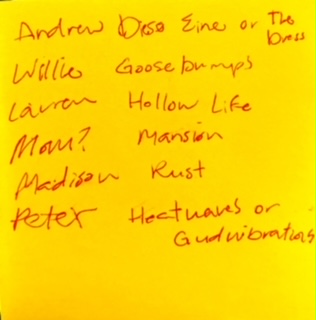 Andrew Dess Eine or The Dress
Willie Goosebumps
Lauren Hollow Life
Mom? Mansion
Madison Rust
Peter Heatwaves or
Gudvibrations